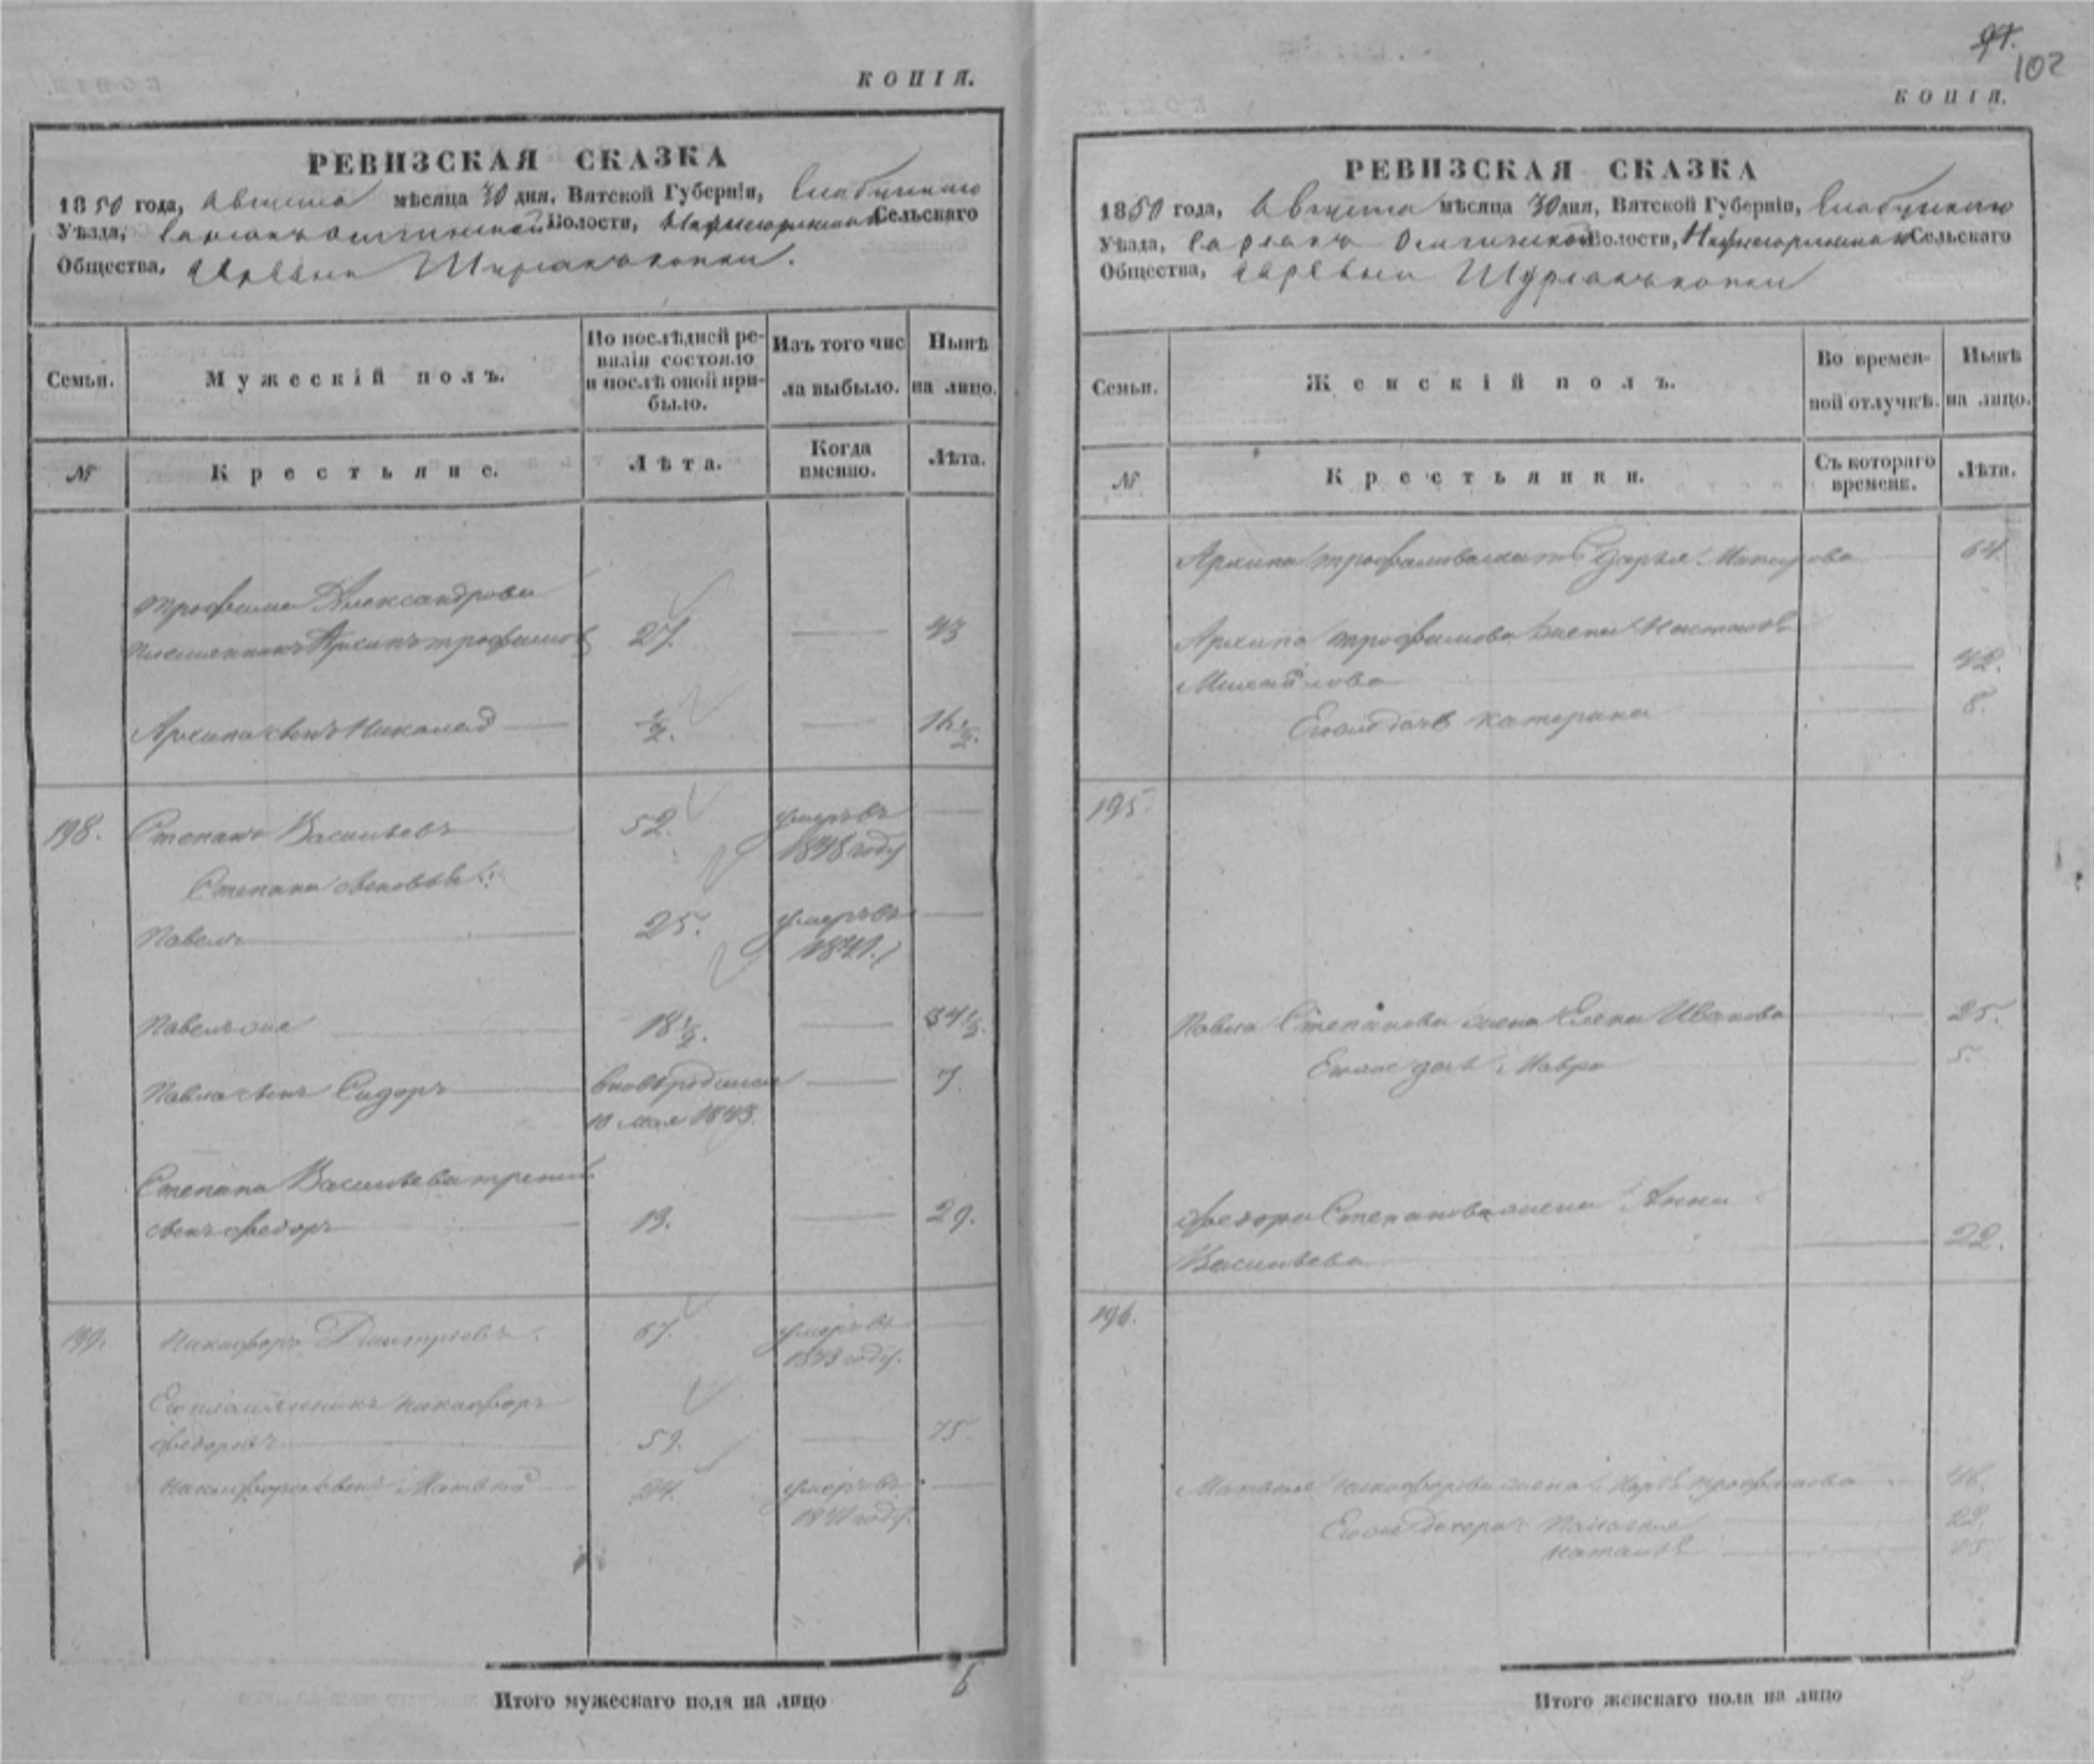 КОПІЯ.
РЕВИЗСКАЯ СКАЗКА
1850 года, Августа мѣсяца 30 дня, Вятской Губерніи, Елабужскаго
Уѣзда, Волости, Сельскаго
Общества, деревни
Семьи.
Мужескій полъ.
По послѣдней ре-
визіи состояло
и послѣ оной при-
было.
Изъ того чис
ла выбыло.
Нынѣ
на лицо.
№
Крестьяне.
Лѣта.
Когда
именно.
Лѣта.
Трофима Александрова
племянникъ Архипъ Трофимовъ 27. 43
Архипа сынъ Николай ½. 16½.
198. Степанъ Васильевъ 52. умеръ въ
1848 году
Степана сыновья:
Павелъ 25. умеръ въ
1841.
Павелъ же 18½. 34½.
Павла сынъ Сидоръ вновь родился 7.
10 мая 1843.
Степана Васильева третій
сынъ Федоръ 13. 29.
199. Никифоръ Дмитріевъ. 67. умеръ въ
1843 году.
Его племянникъ Никифоръ
Федоровъ 59. 75
Никифора сынъ Матвей 24. умеръ въ
1841 году.
Итого мужескаго пола на лицо 6
97.
102
КОПІЯ.
РЕВИЗСКАЯ СКАЗКА
1850 года, Августа мѣсяца 30 дня, Вятской Губерніи, Елабужскаго
Уѣзда, Волости, Сельскаго
Общества, деревни
Семьи.
Женскій полъ.
Во времен-
ной отлучкѣ.
Нынѣ
на лицо.
№
Крестьянки.
Съ котораго
времени.
Лѣта.
Архипа Трофимова мать Дарья 64.
Архипа Трофимова жена Настасья
Михайлова 42.
Его же дочь Катерина 8.
195
Павла Степанова жена Елена Иванова 25.
Его же дочь Мавра 5.
Федора Степанова жена Анна
Васильева 22.
196.
Матвея Никифорова жена Трофимова 46.
Его же дочери Палагея 22.
Наталья 15
Итого женскаго пола на лицо